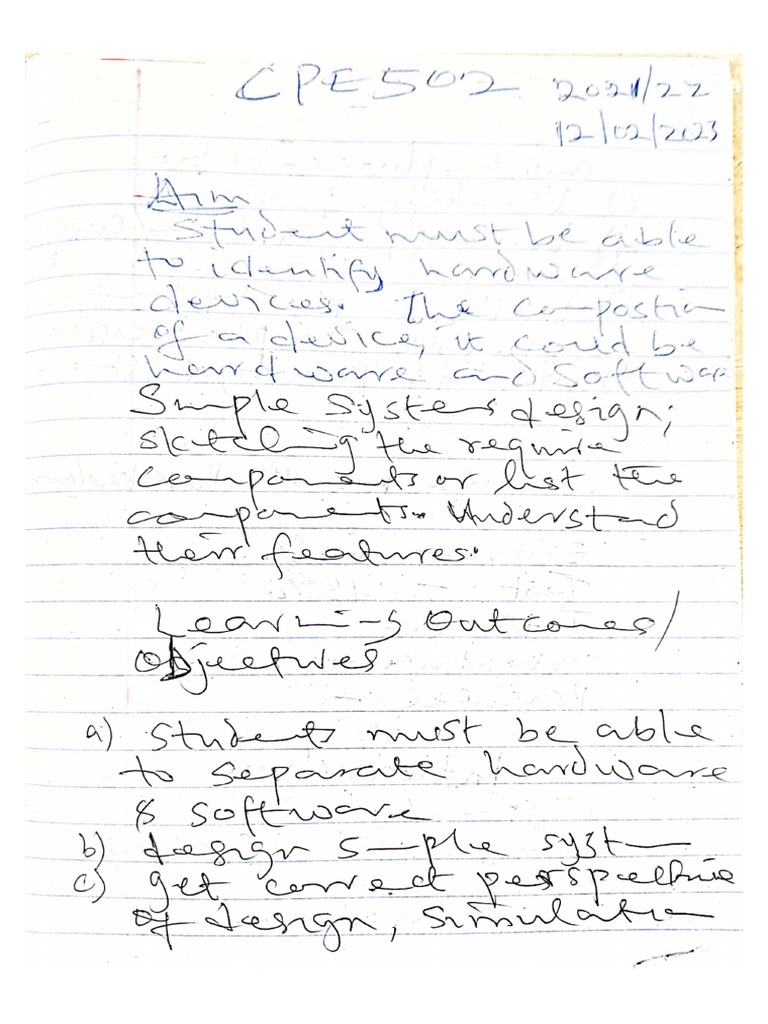 CPE 502 2021/22
12/02/2023
Aim
Student must be able
to identify hardware
devices. The compostion
of a device, it could be
hardware and software
Simple Systems design;
sketching the require
components or list the
components. Understand
their features.
Learning Outcomes/
Objectives
a) students must be able
to separate hardware
& software
b) design simple system
c) get correct perspective
of design, simulation